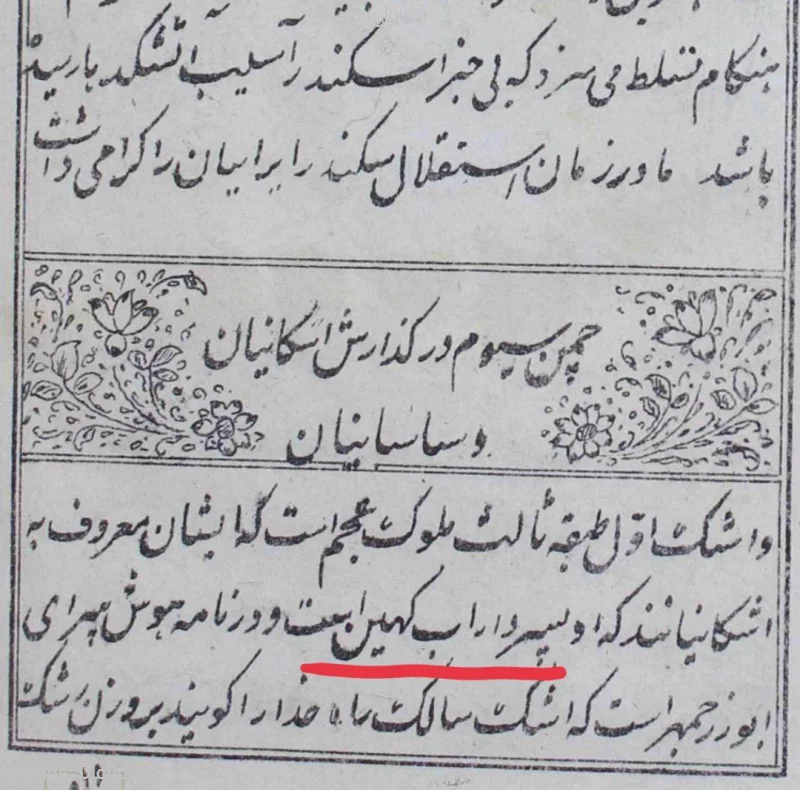 هنگام تسلط می سزد که بی خبر اسکندر آسیب آتشکد بارسیده
باشد ما در زمان استقلال سکندر ایرانیان را کرامی داشت
چمن سیوم در کذارش اشکانیان
و ساسانیان
و اشک اول طبقه ثالث ملوک عجم است که ایشان معروف به
اشکانیانند که او پسر داراب کهین است و در نامه هوش سرای
ابوزرجمهر است که اشک سالک راه خدا را کویند بر وزن رشک